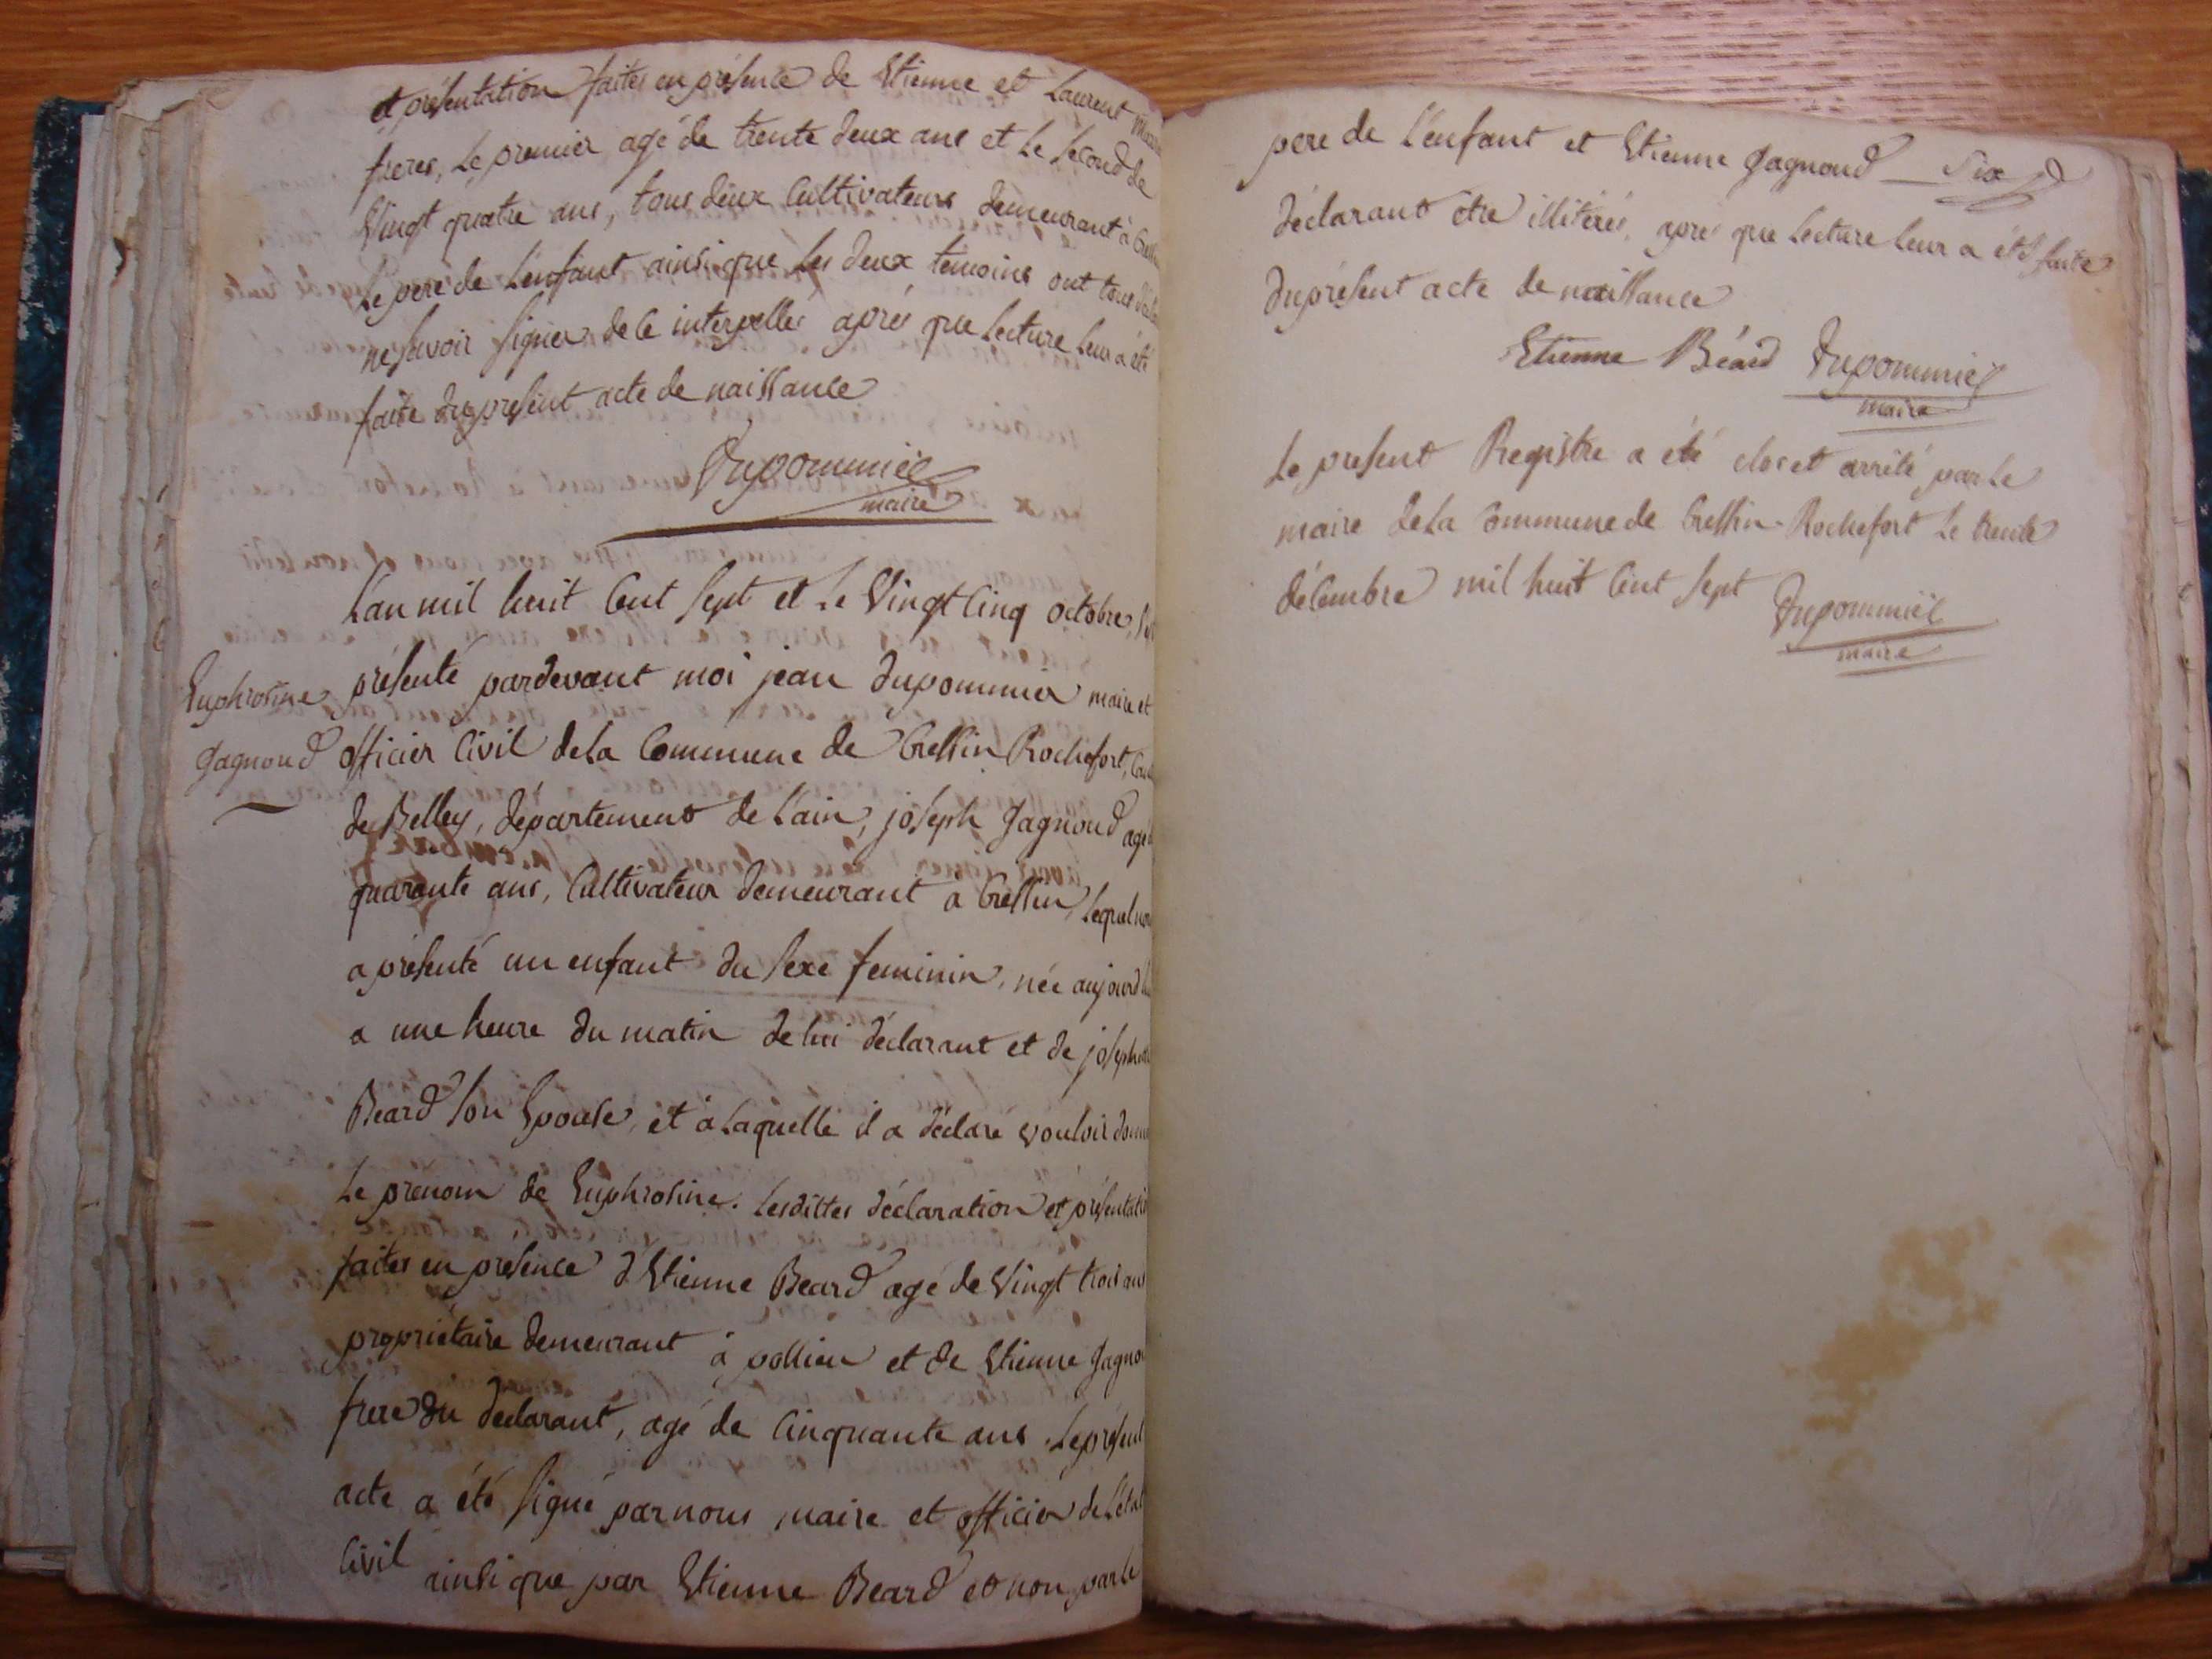 et présentation faites en présence de Etienne et Laurent
freres, Le premier agé de trente deux ans et Le Second de
Vingt quatre ans, tous deux Cultivateurs demeurant à
Le pere de L'enfant ainsi que Les deux temoins ont tous
ne Savoir Signer de ce interpellés après que Lecture Leur a été
faite du present acte de naissance
Dupommier
maire
L'an mil huit Cent Sept et Le Vingt Cinq octobre, S'est
Euphrosine
Gagnoud
présenté pardevant moi jean Dupommier maire et
officier Civil de La Commune de Cressin Rochefort,
de Belley, département de L'ain, joseph Gagnoud agé
quarante ans, Cultivateur demeurant à Cressin, Lequel
a présenté un enfant du Sexe feminin, née aujourd'hui
a une heure du matin de lui déclarant et de josephte
Beard Son Epouse, et à Laquelle il a déclaré vouloir donner
Le prenom de Euphrosine. Lesdittes déclaration et présentation
faites en présence d'Etienne Beard agé de Vingt trois ans
propriétaire demeurant à pollieu et de Etienne Gagnoud
frere du déclarant, agé de Cinquante ans. Le présent
acte a été Signé par nous maire et officier de L'état
Civil ainsi que par Etienne Beard et non par le
pere de L'enfant et Etienne Gagnoud
déclarant être illitérés, après que Lecture Leur a été faite
du présent acte de naissance
Etienne Béard Dupommier
maire
Le present Registre a été clos et arrêté par Le
maire de La Commune de Cressin-Rochefort Le trente
décembre mil huit Cent Sept
Dupommier
maire